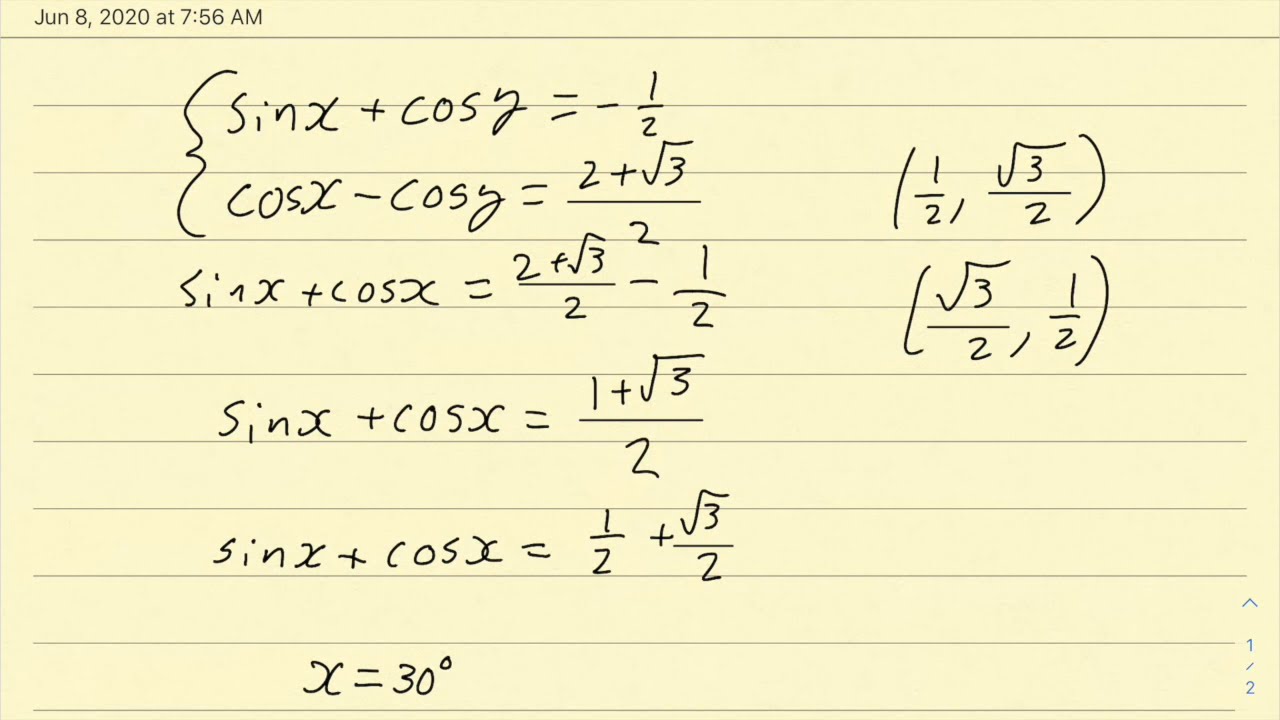 Jun 8, 2020 at 7:56 AM
sinx + cosy = - 1/2
cosx - cosy = (2+√3)/2
(1/2, √3/2)
sinx + cosx = (2+√3)/2 - 1/2
(√3/2, 1/2)
sinx + cosx = (1+√3)/2
sinx + cosx = 1/2 + √3/2
x = 30°
1
/
2